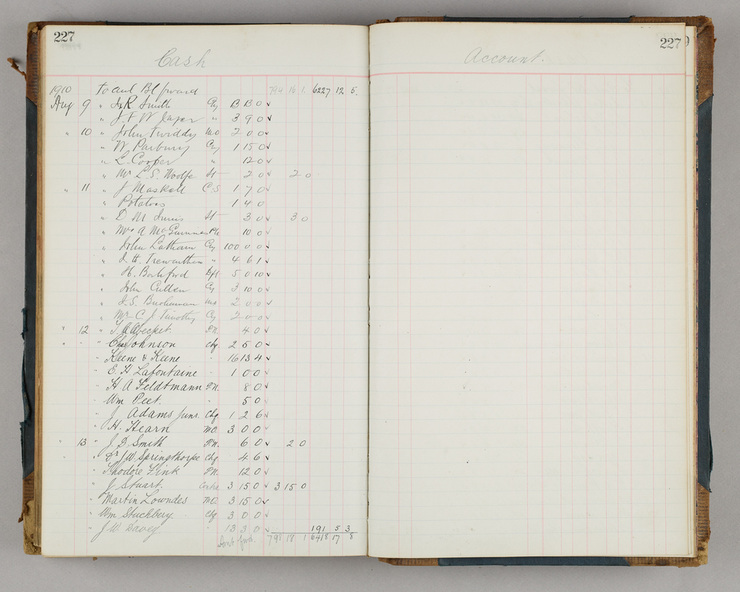 227
Cash
1910 To amt Bt forward 794 16 1 6227 12 5
Aug 9 " R Smith Chq 13 13 0
" J F W 3 9 0
" 10 " John Twiddy MO 2 0 0
" W Parbury Chq 1 15 0
" L. Cooper " 12 0
" Mr L. S. Woolfe St 2 0 2 0
" 11 " J Maskell C.S 1 7 0
" Potatoes 1 4 0
" D M St 3 0 3 0
" Mrs A McGuinness PN 10 0
" John Latham Chq 100 0 0
" J. H. Trewartha " 4 6 1
" H. 5 0 10
" John Cullen Chq 3 10 0
" J. S. Buchanan MO 2 0 0
" Mr C. J. Timothy Chq 2 0 0
" 12 " PN 4 0
" Johnson Chq 2 5 0
" Keene & Keene 16 13 4
" E H Lafontaine 1 0 0
" H A Feldtmann PN. 8 0
" Wm Peet. 5 0
" J Adams Junr Chq 1 2 6
" H. Hearn MO. 3 0 0
" 13 " J G Smith PN. 6 0 2 0
" Dr J W Springthorpe Chq 4 6
" Theodore Fink PN. 12 0
" J Stuart 3 15 0 3 15 0
" Martin Lowndes MO. 3 15 0
" Wm Stuckbery Chq 3 0 0
" J. W. Davey 13 3 0 191 5 3
Fwd 6418 17 8
Account.
227